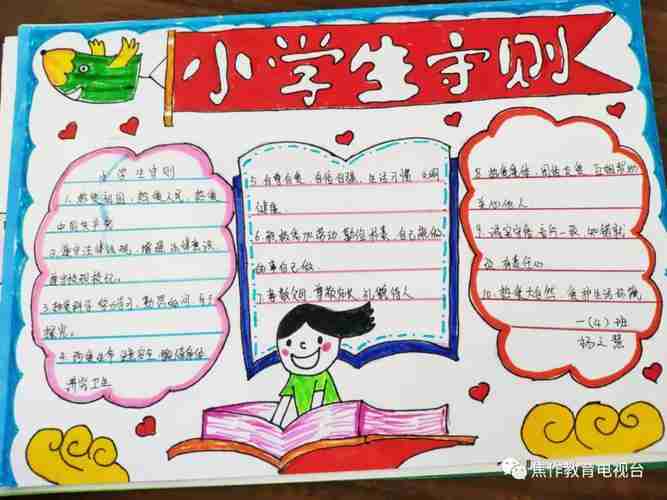 小学生守则
小学生守则
1.热爱祖国,热爱人民,热爱
中国共产党
2.遵守法律法规,增强法律意识
遵守校规校纪。
3.热爱科学 努力学习,勤思好问 乐于
探究。
4.珍爱生命
讲究卫生
5.自尊自爱 自信自强,生活习惯 文明
健康
6.积极参加劳动 勤俭朴素 自己能做
的事自己做
7.孝敬父母 尊敬师长 礼貌待人
8.热爱集体,团结友爱 互相帮助
关心他人
9.诚实守信 言行一致 知错就
改 有责任心
10.热爱大自然 爱护生活环境
一(4)班
杨之慧
焦作教育电视台